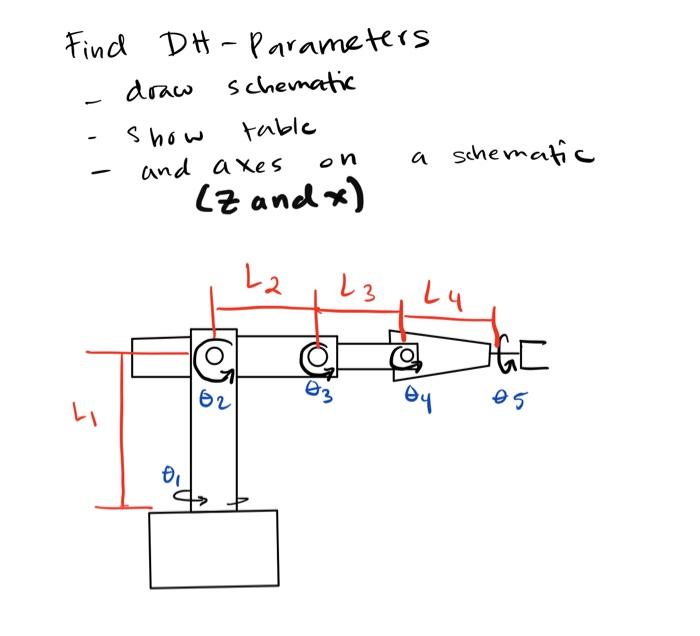 Find DH-Parameters
- draw schematic
- show table
- and axes on a schematic
(z and x)
L2 L3 L4
θ2 θ3 θ4 θ5
L1
θ1